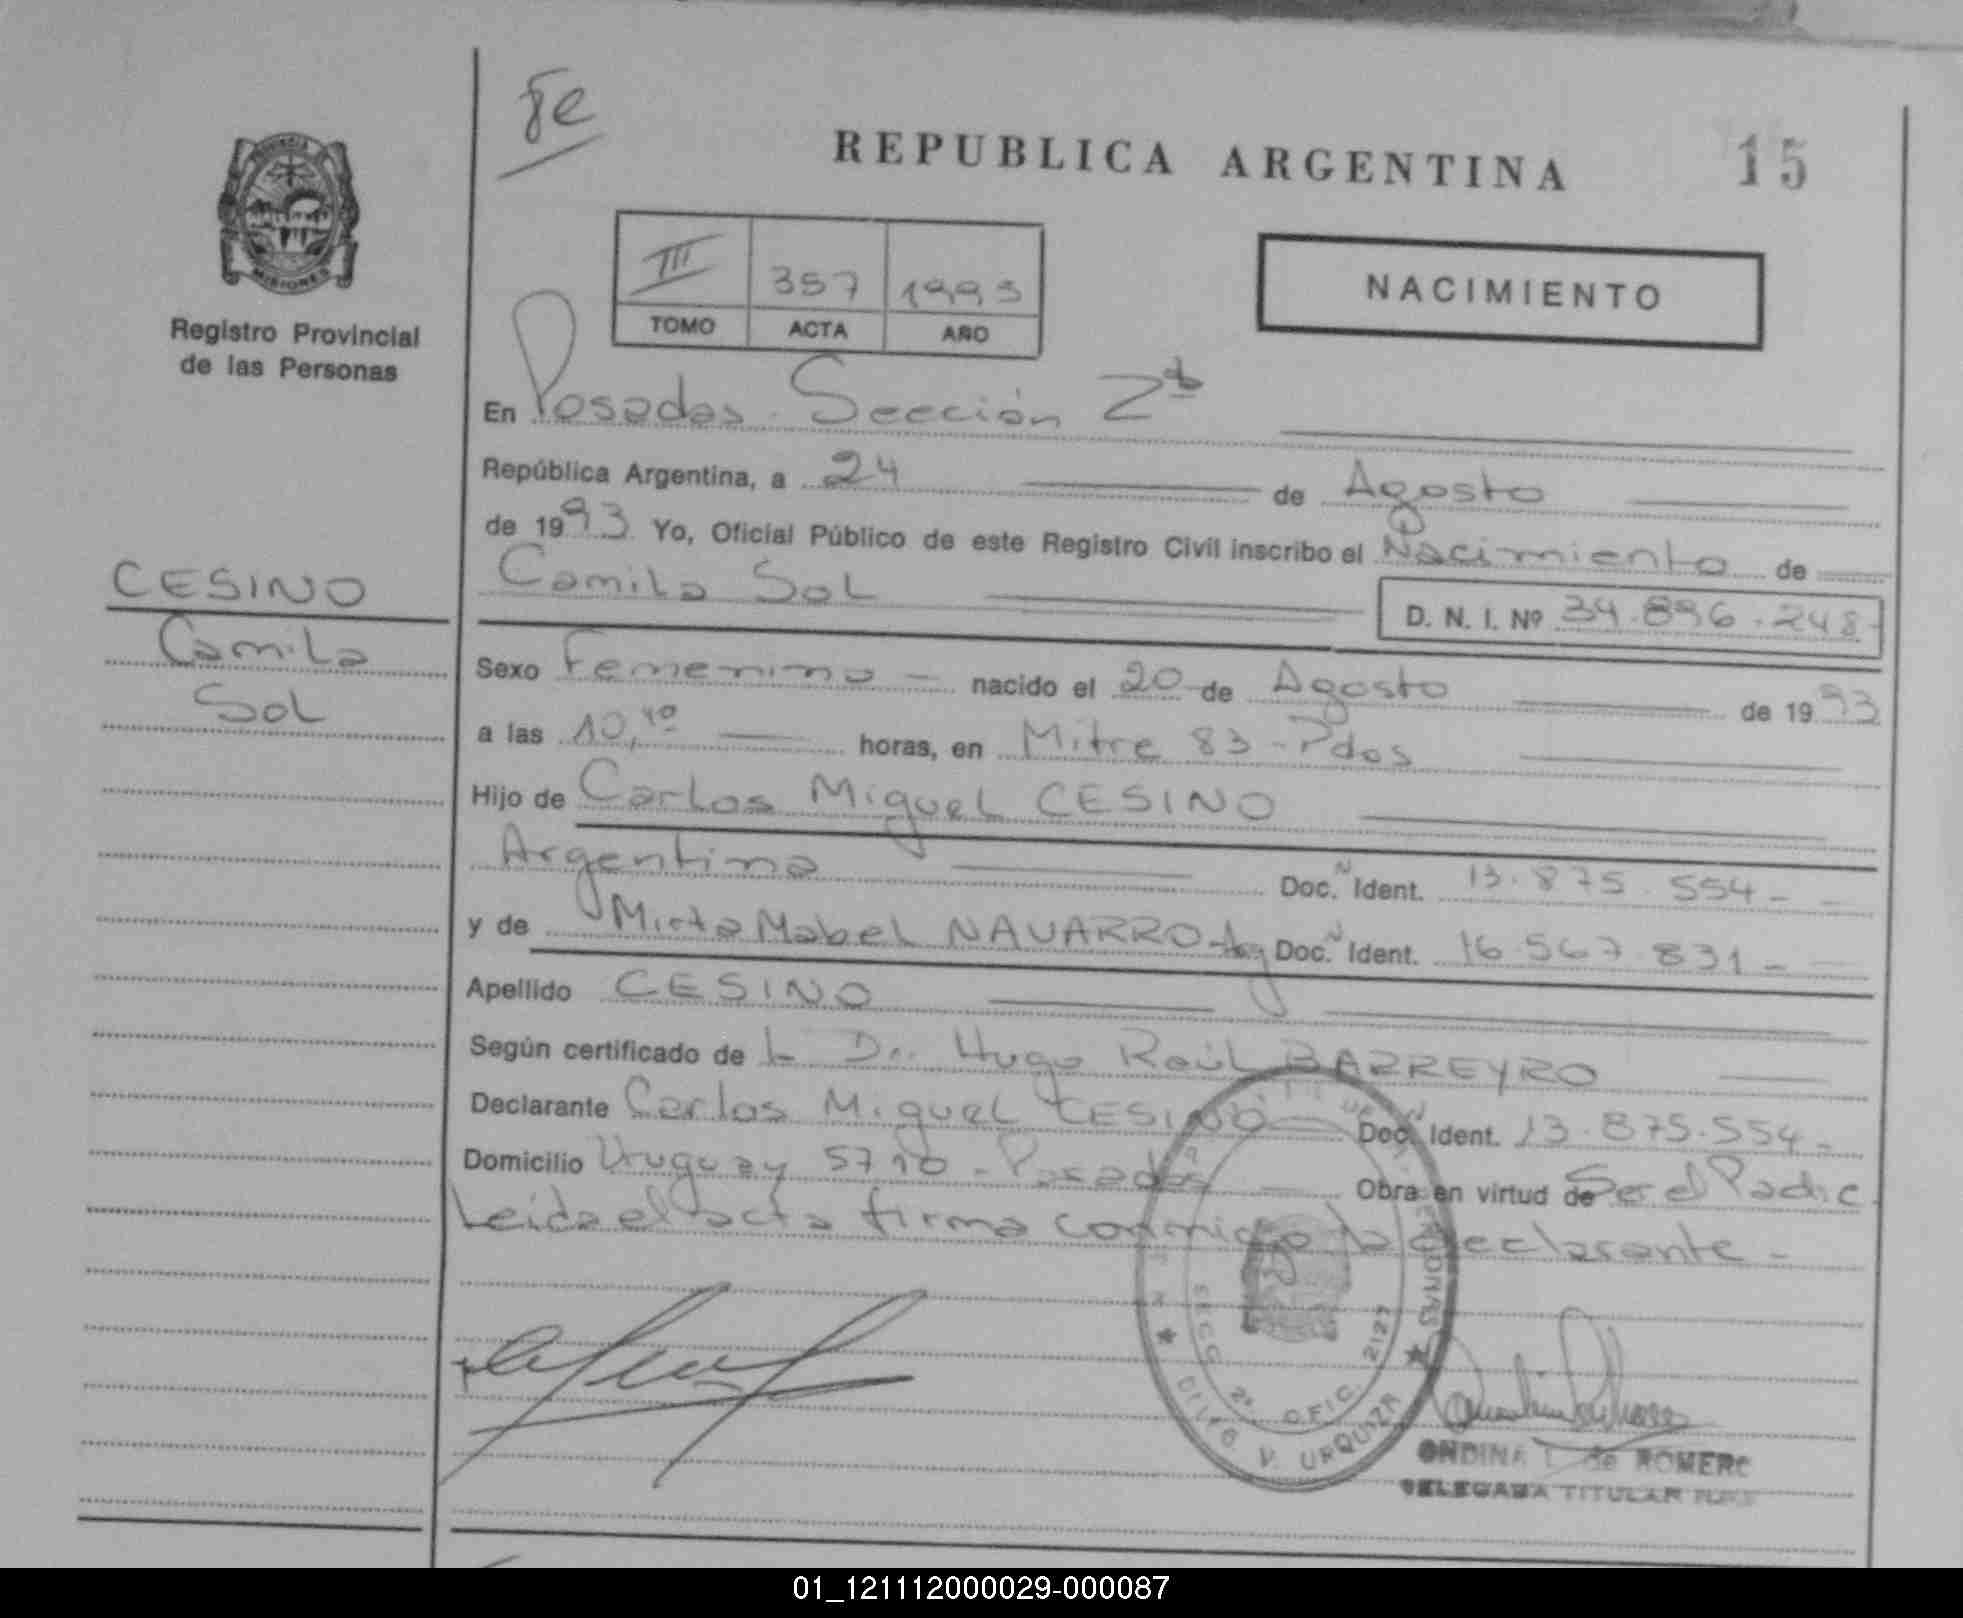 fe
REPUBLICA ARGENTINA
15
PROVINCIA DE
MISIONES
Registro Provincial
de las Personas
III 357 1993
TOMO ACTA AÑO
NACIMIENTO
En Posadas - Sección 2da
República Argentina, a 24 de Agosto
de 1993 Yo, Oficial Público de este Registro Civil inscribo el Nacimiento de
Camila Sol
D. N. I. Nº 34.896.248-
CESINO
Camila
Sol
Sexo Femenino - nacido el 20 de Agosto de 1993
a las 10,40 horas, en Mitre 83 - Pdas
Hijo de Carlos Miguel CESINO
Argentina Doc. N Ident. 13.875.554-
y de Mirta Mabel NAVARRO - Arg Doc. N Ident. 16.567.831-
Apellido CESINO
Según certificado de L Dr. Hugo Raúl BARREYRO
Declarante Carlos Miguel CESINO Doc. N Ident. 13.875.554-
Domicilio Uruguay 5710 - Posadas Obra en virtud de Ser el Padre.
Leida el acta firma conmigo la declarante -
PERSONAS
SECC. 2ª. OFIC. 2127
V. URQUIZA
ONDINA de ROMERO
DELEGADA TITULAR
01_121112000029-000087